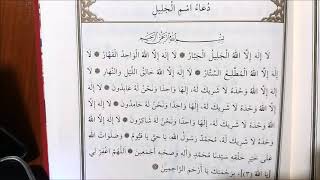 دُعَاءُ اسْمِ الْجَلِيلِ
بِسْمِ اللهِ الرَّحْمٰنِ الرَّحِيمِ
لَا إِلٰهَ إِلَّا اللهُ الْجَلِيلُ الْجَبَّارُ لَا إِلٰهَ إِلَّا اللهُ الْوَاحِدُ الْقَهَّارُ لَا
إِلٰهَ إِلَّا اللهُ الْمُطَّلِعُ السَّتَّارُ لَا إِلٰهَ إِلَّا اللهُ خَالِقُ اللَّيْلِ وَالنَّهَارِ لَا إِلٰهَ
إِلَّا اللهُ وَحْدَهُ لَا شَرِيكَ لَهُ، إِلٰهًا وَاحِدًا وَنَحْنُ لَهُ عَابِدُونَ لَا إِلٰهَ إِلَّا اللهُ
وَحْدَهُ لَا شَرِيكَ لَهُ، إِلٰهًا وَاحِدًا وَنَحْنُ لَهُ حَامِدُونَ لَا إِلٰهَ إِلَّا اللهُ
وَحْدَهُ لَا شَرِيكَ لَهُ، إِلٰهًا وَاحِدًا وَنَحْنُ لَهُ شَاكِرُونَ لَا إِلٰهَ إِلَّا اللهُ
وَحْدَهُ لَا شَرِيكَ لَهُ، مُحَمَّدٌ رَسُولُ اللهِ، يَا حَيُّ يَا قَيُّومُ وَصَلَوَاتُ اللهِ
عَلَى خَيْرِ خَلْقِهِ سَيِّدِنَا مُحَمَّدٍ وَآلِهِ وَصَحْبِهِ أَجْمَعِينَ اللّٰهُمَّ اغْفِرْ لِي
يَا اللهُ (٣)، بِرَحْمَتِكَ يَا أَرْحَمَ الرَّاحِمِينَ